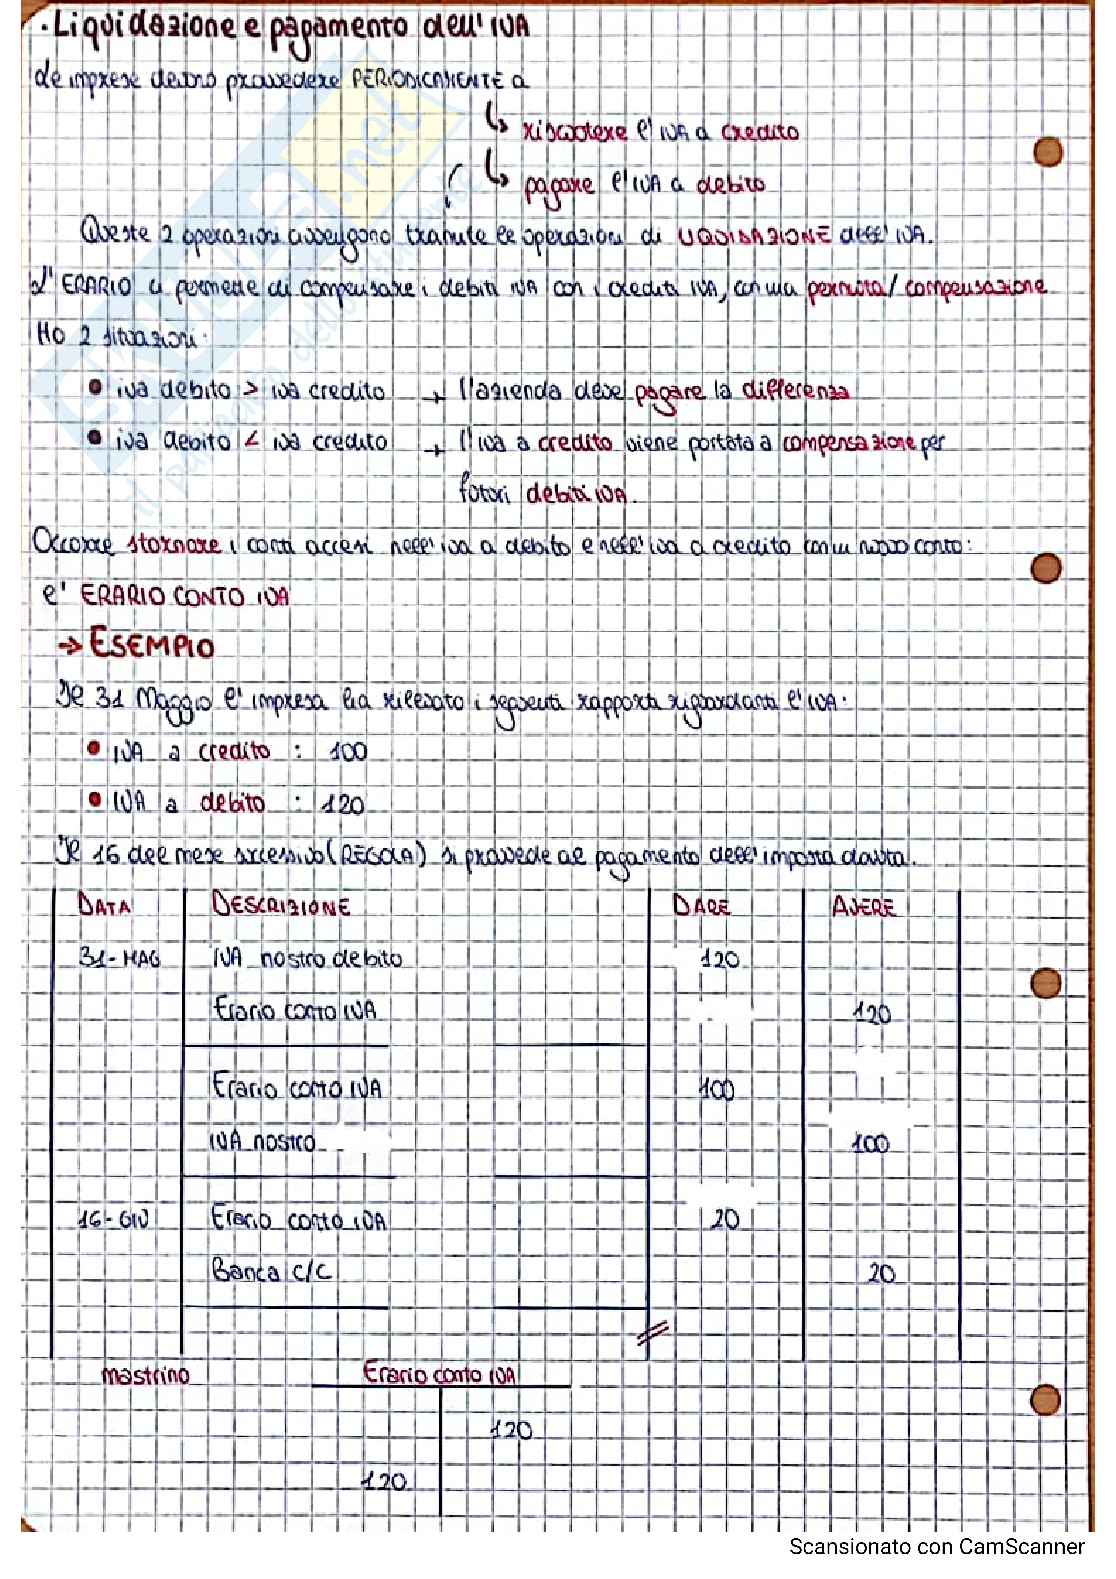 . Liquidazione e pagamento dell' IVA
Le imprese devono provvedere PERIODICAMENTE a
↳ riscuotere l' IVA a credito
↳ pagare l'IVA a debito
Queste 2 operazioni avvengono tramite le operazioni di LIQUIDAZIONE dell' IVA.
L' ERARIO ci permette di compensare i debiti IVA con i crediti IVA, con una permuta/ compensazione
Ho 2 situazioni:
• iva debito > iva credito → l'azienda deve pagare la differenza
• iva debito < iva credito → l'iva a credito viene portata a compensazione per
futuri debiti IVA.
Occorre stornare i conti accesi nell' iva a debito e nell' iva a credito con un nuovo conto:
e' ERARIO CONTO IVA
→ ESEMPIO
Il 31 Maggio l' impresa ha rilevato i seguenti rapporti riguardanti l' IVA:
• IVA a credito : 100
• IVA a debito : 120
Il 16 del mese successivo (REGOLA) si provvede al pagamento dell' imposta dovuta.
DATA DESCRIZIONE DARE AVERE
31-MAG IVA nostro debito 120
Erario conto IVA 120
Erario conto IVA 100
IVA nostro 100
16-GIU Erario conto IVA 20
Banca c/c 20
mastrino Erario conto IVA
120
120
Scansionato con CamScanner